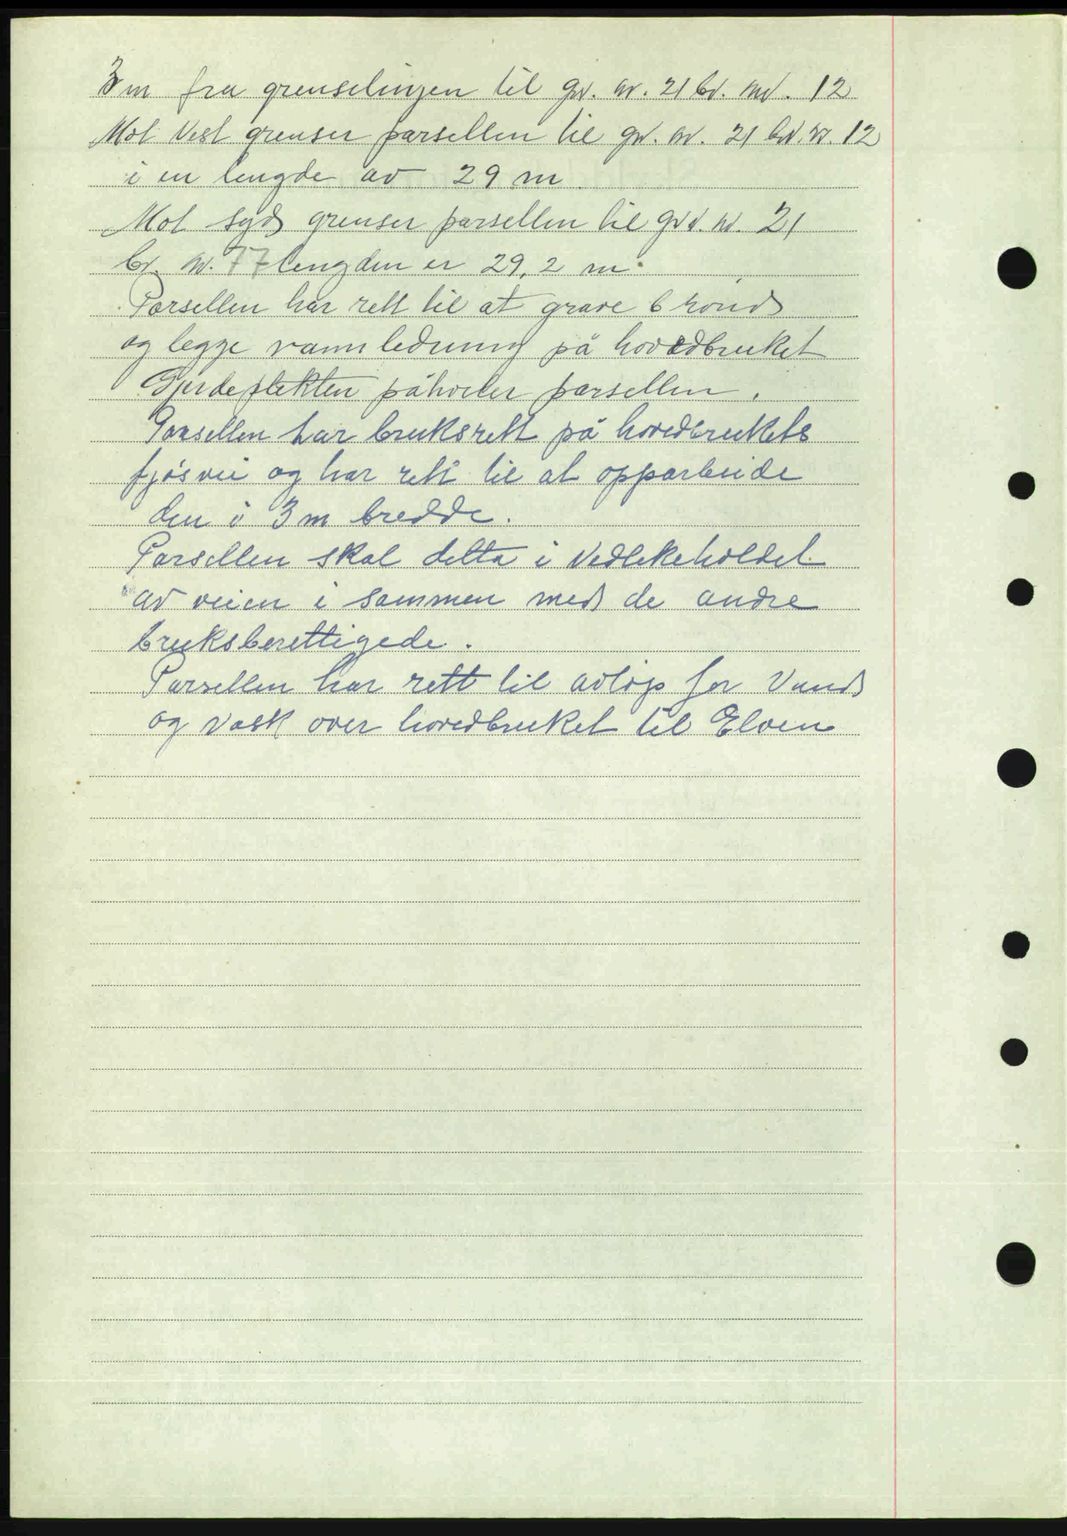 3 m fra grenselinjen til gr. nr. 21 br. nr. 12
Mot Vest grenser parsellen til gr. nr. 21 br. nr. 12
i en lengde av 29 m
Mot syd grenser parsellen til grd. nr. 21
br. nr. 77 lengden er 29,2 m.
Parsellen har rett til at grave brønd
og legge vannledning på hovedbruket
Gjerdeplikten påhviler parsellen.
Parsellen har bruksrett på hovedbrukets
fjøsvei og har rett til at opparbeide
den i 3 m bredde.
Parsellen skal delta i vedlikeholdet
av veien i sammen med de andre
bruksberettigede.
Parsellen har rett til avløp for Vand
og vask over hovedbruket til Elven